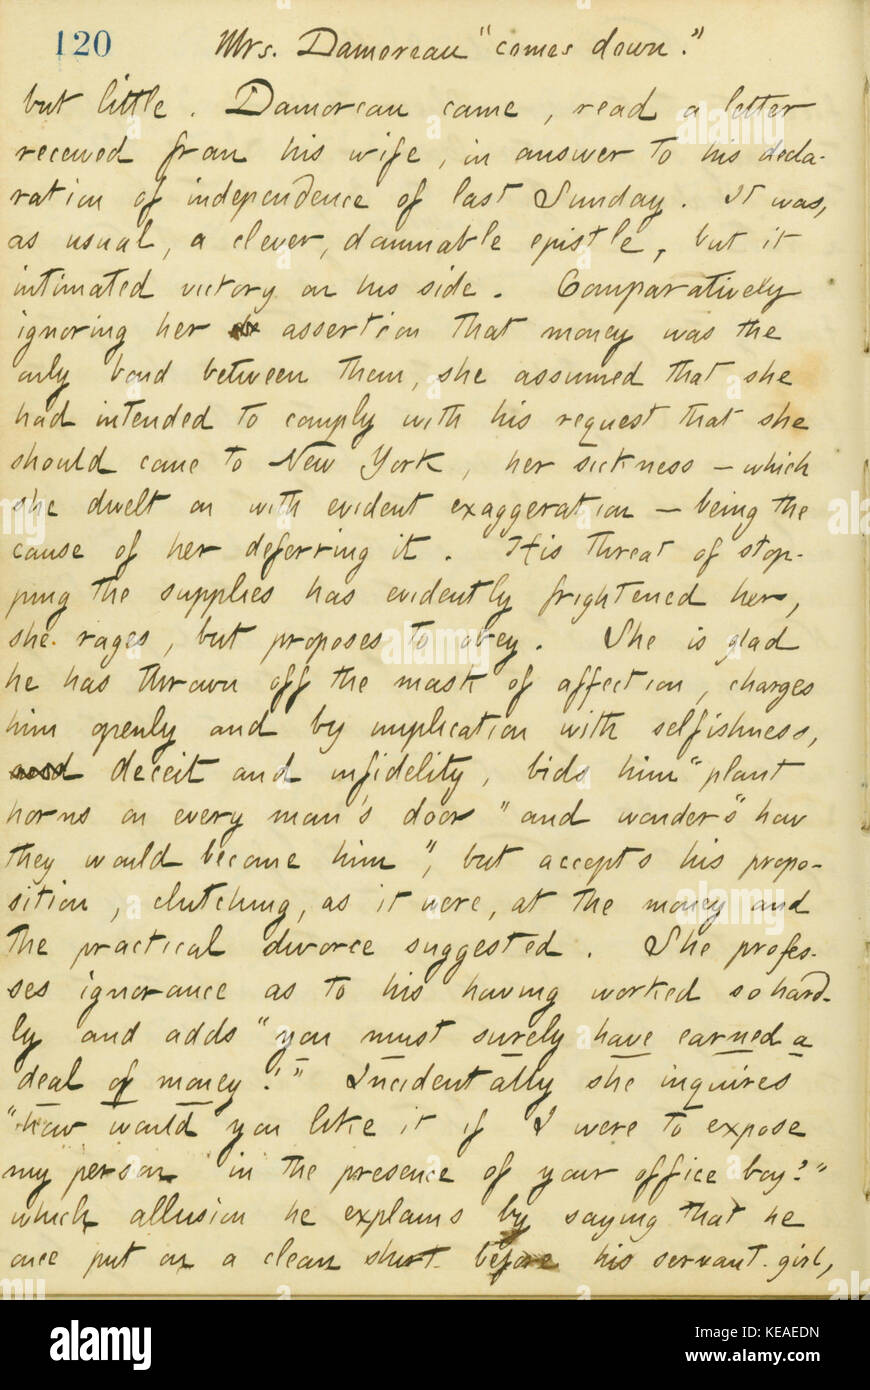 120 Mrs. Damoreau "comes down."
but little. Damoreau came, read a letter
received from his wife, in answer to his decla-
ration of independence of last Sunday. It was,
as usual, a clever, damnable epistle, but it
intimated victory on his side. Comparatively
ignoring her assertion that money was the
only bond between them, she assumed that she
had intended to comply with his request that she
should come to New York, her sickness — which
she dwelt on with evident exaggeration — being the
cause of her deferring it. His threat of stop-
ping the supplies has evidently frightened her,
she rages, but proposes to obey. She is glad
he has thrown off the mask of affection, charges
him openly and by implication with selfishness,
and deceit and infidelity, bids him "plant
horns on every man's door" and wonders "how
they would become him", but accepts his propo-
sition, clutching, as it were, at the money and
the practical divorce suggested. She profes-
ses ignorance as to his having worked so hard-
ly and adds "you must surely have earned a
deal of money!" Incidentally she inquires
"how would you like it if I were to expose
my person in the presence of your office boy?"
which allusion he explains by saying that he
once put on a clean shirt before his servant-girl,
alamy
Image ID: KEAEDN
www.alamy.com